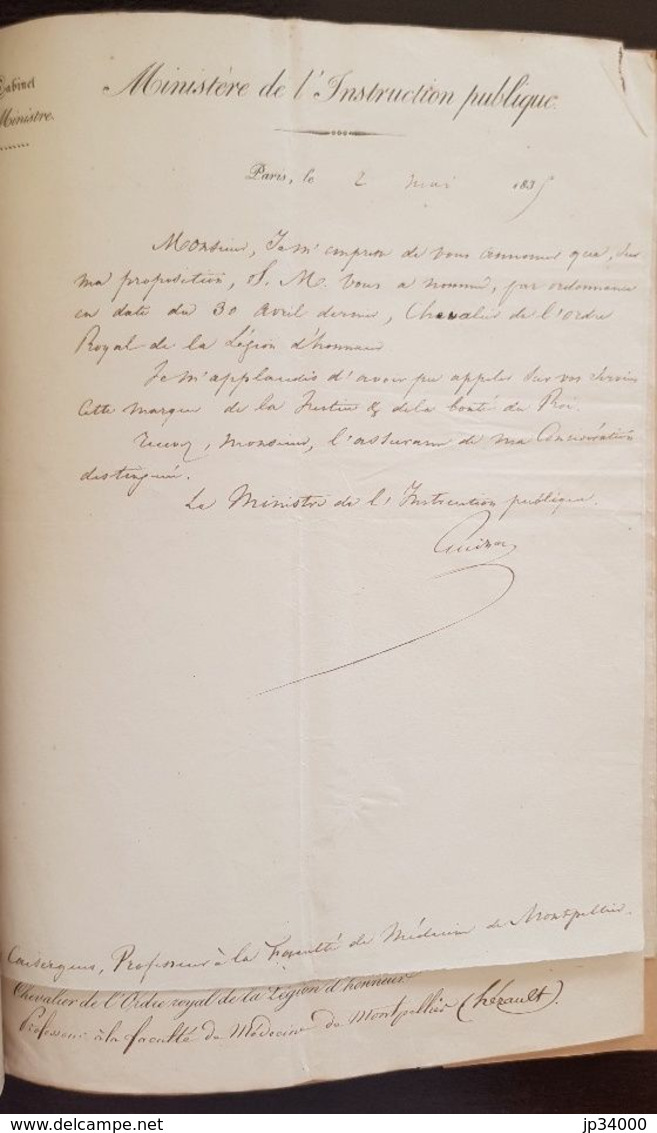 Cabinet
Ministre.
Ministère de l'Instruction publique.
Paris, le 2 mai 1835
Monsieur, Je m'empresse de vous annoncer que, sur
ma proposition, S. M. vous a nommé, par ordonnance
en date du 30 avril dernier, Chevalier de l'ordre
Royal de la Légion d'honneur
Je m'applaudis d'avoir pu appeler sur vos services
cette marque de la Justice & de la bonté du Roi.
Recevez, Monsieur, l'assurance de ma Considération
distinguée.
Le Ministre de l'Instruction publique.
Guizot
Caisergues, Professeur à la Faculté de Médecine de Montpellier.
Chevalier de l'Ordre royal de la Légion d'honneur
Professeur à la faculté de Médecine de Montpellier (hérault).
www.delcampe.net
jp34000